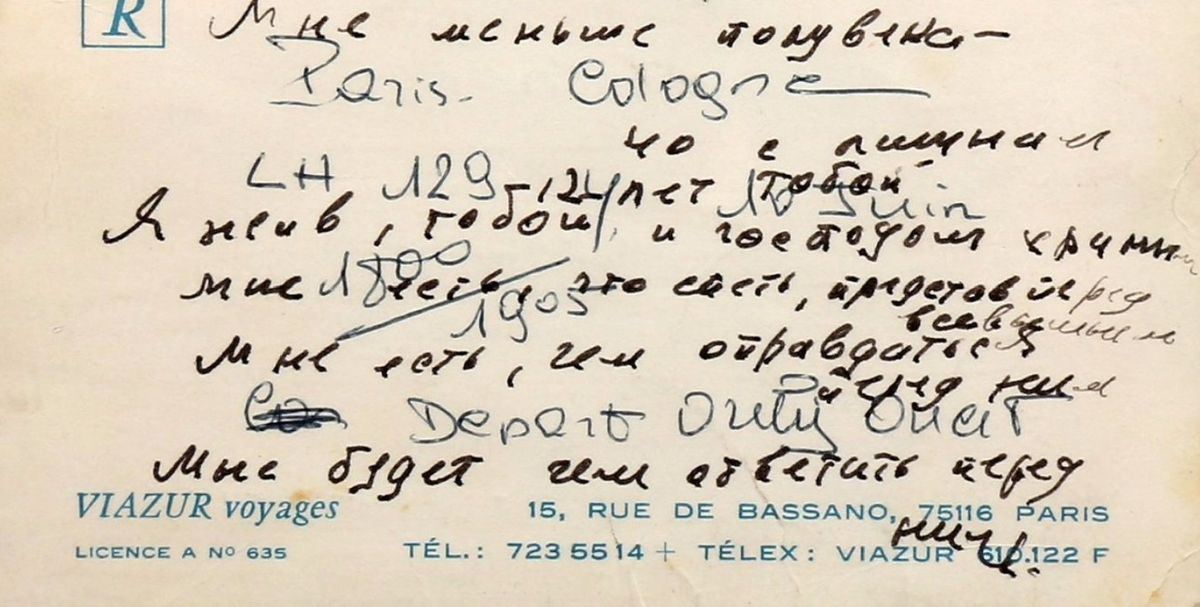 R Мне меньше полувека—
Paris. Cologne
но с лишним
LH 129 - 12 лет тобой 10 Juin
Я жив, тобой, и господом храним
1800
мне есть, что спеть, представ перед
1905
всевышним
Мне есть, чем оправдаться
перед ним
Depart Orly Ouest
Мне будет чем ответить перед
VIAZUR voyages 15, RUE DE BASSANO, 75116 PARIS
ним.
LICENCE A No 635 TÉL.: 723 55 14 + TÉLEX: VIAZUR 610.122 F